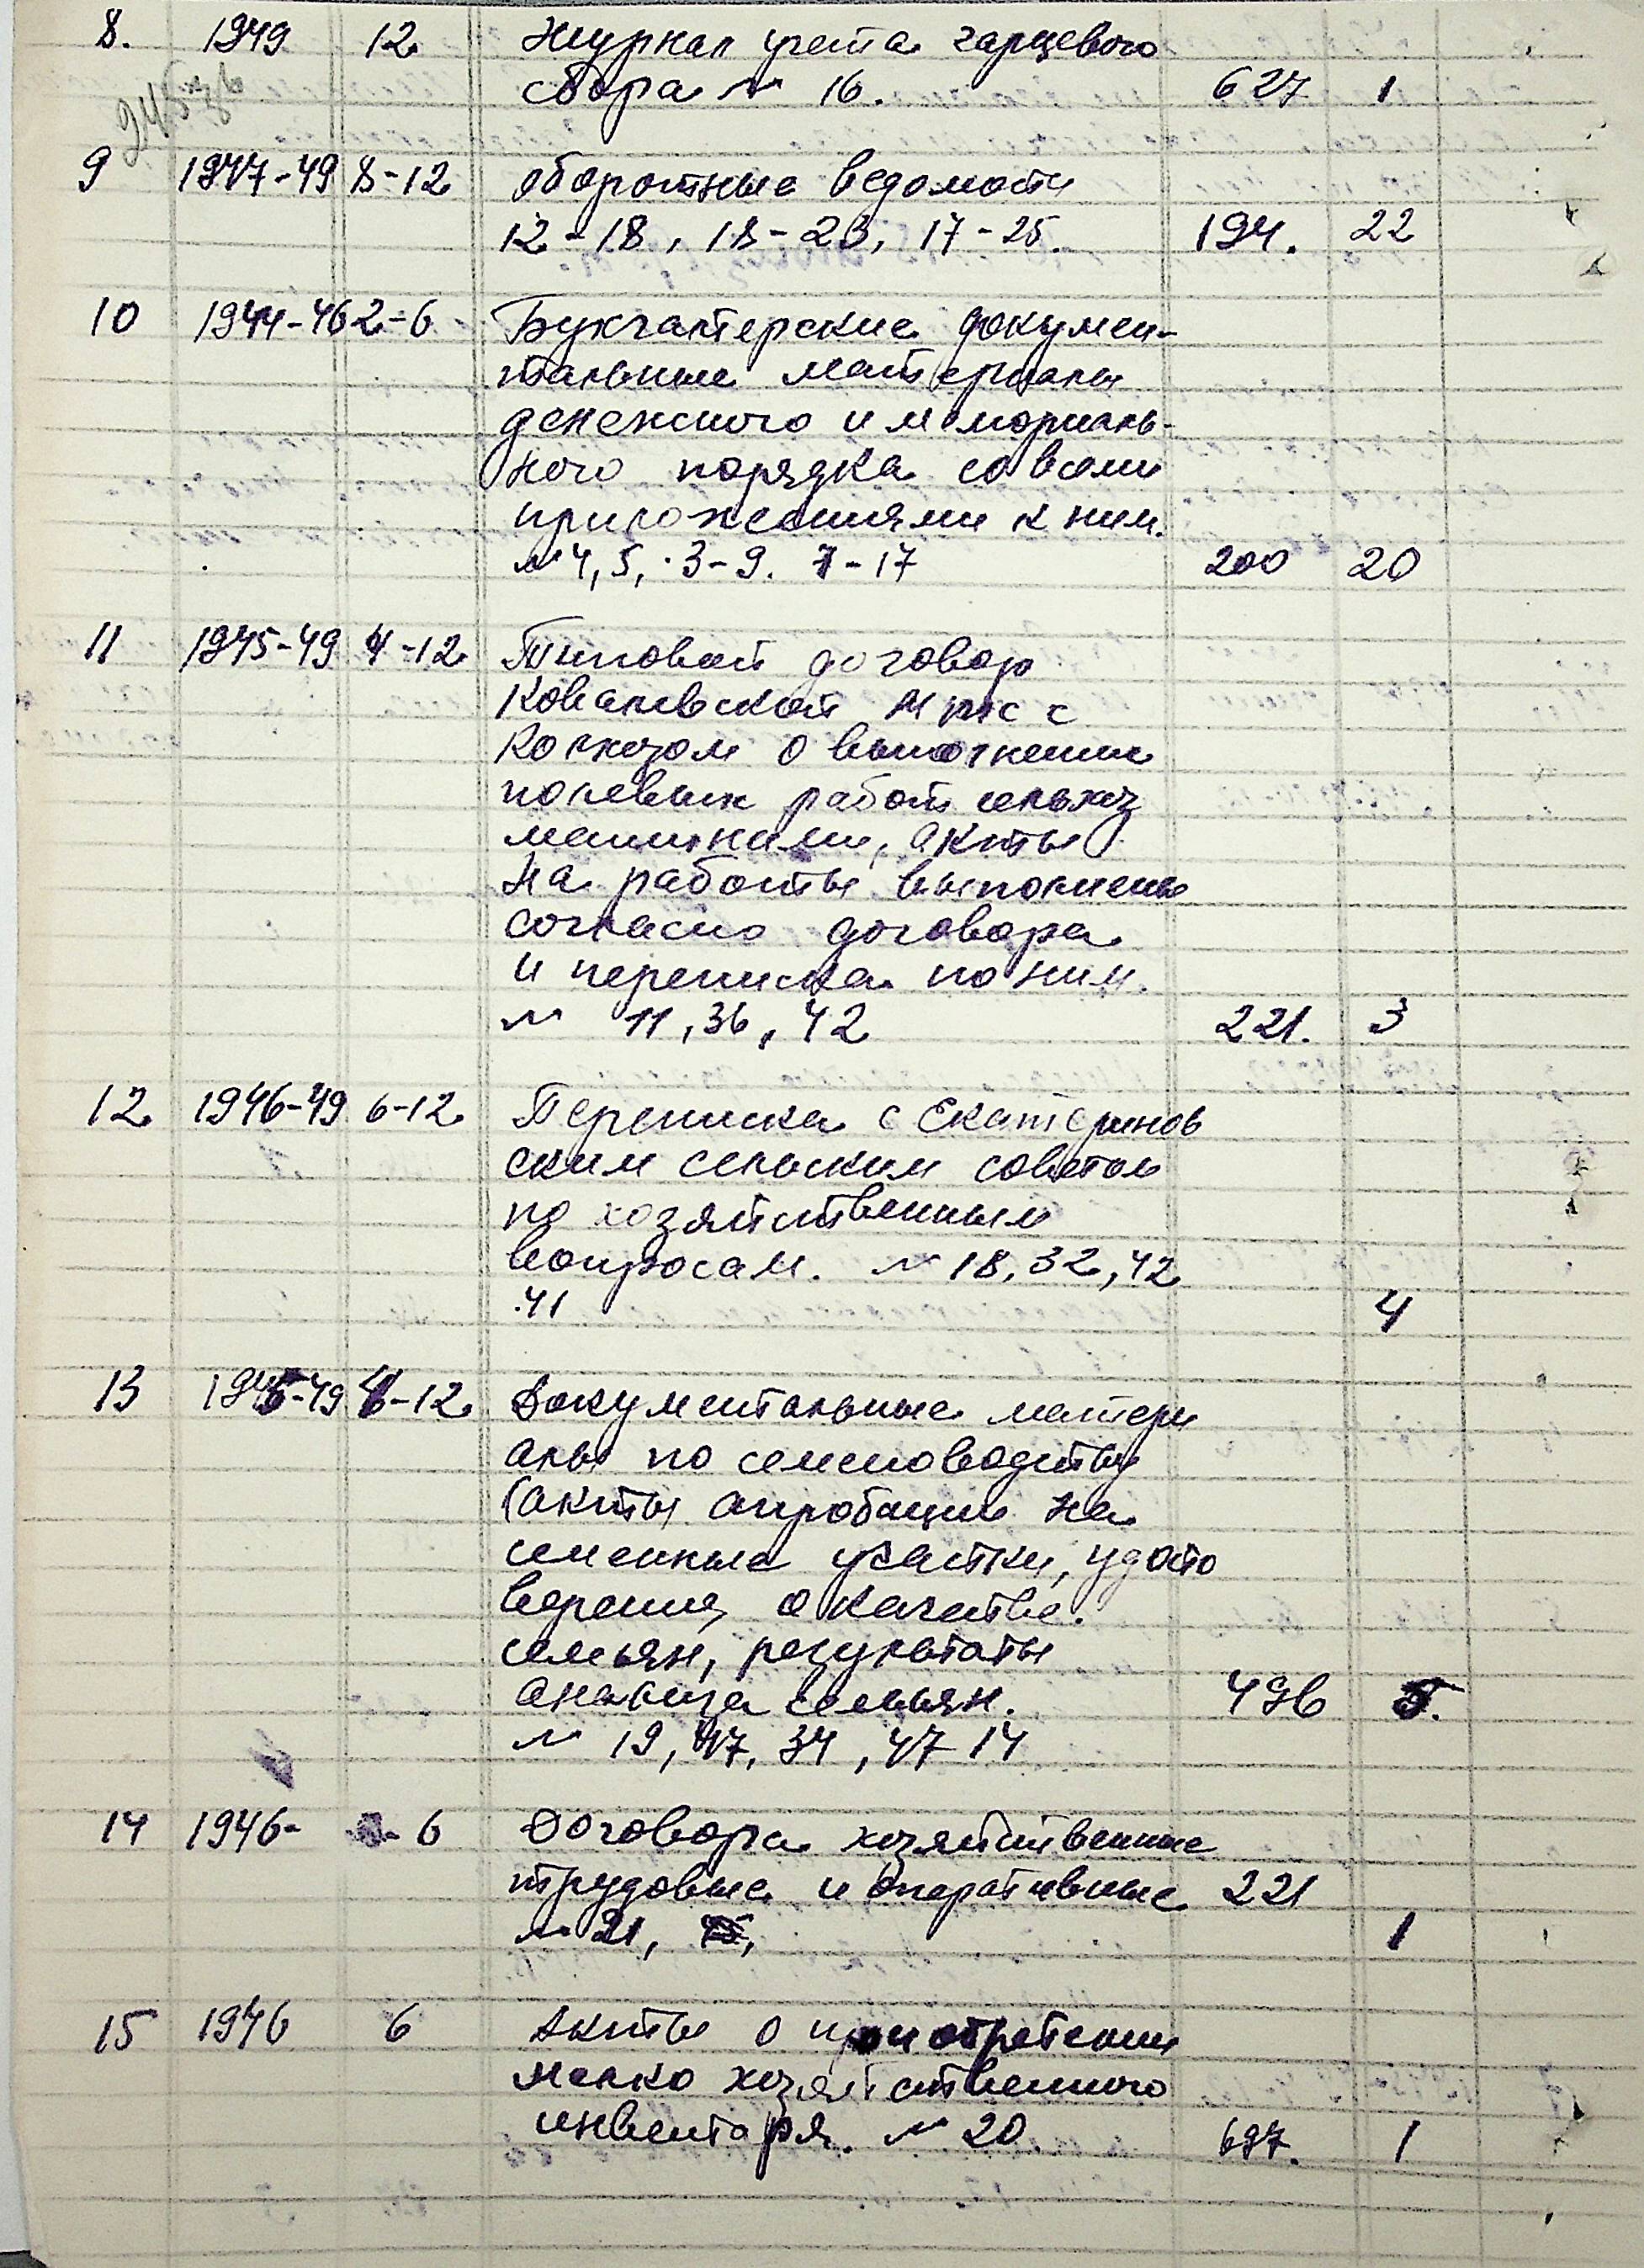 8. 1949 12 Журнал учета гарцевого
сбора № 16. 627 1
9 1947-49 8-12 оборотные ведомости
12-18, 18-23, 17-25. 194. 22
10 1944-46 2-6 Бухгалтерские докумен-
тальные материалы
денежного и мемориаль-
ного порядка со всеми
приложениями к ним.
№ 4, 5, 3-9. 7-17 200 20
11 1945-49 4-12 Типовой договор
Ковалевской МТС с
колхозом о выполнении
полевых работ сельхоз
машинами, акты
на работы выполнены
согласно договора
и переписка по ним.
№ 11, 36, 42 221. 3
12 1946-49 6-12 Переписка с Екатеринов
ским сельским советом
по хозяйственным
вопросам. № 18, 32, 42
41 4
13 1945-49 4-12 Документальные матери
алы по семеноводству
(акты апробации на
семенные участки, удосто
верения о качестве
семьян, результаты
анализа семьян. 496 5.
№ 19, 47, 34, 47 14
14 1946- 6 Договора хозяйственные
трудовые и оперативные 221
№ 21, 1
15 1946 6 Акты о приобретении
мелко хозяйственного
инвентаря. № 20. 697. 1